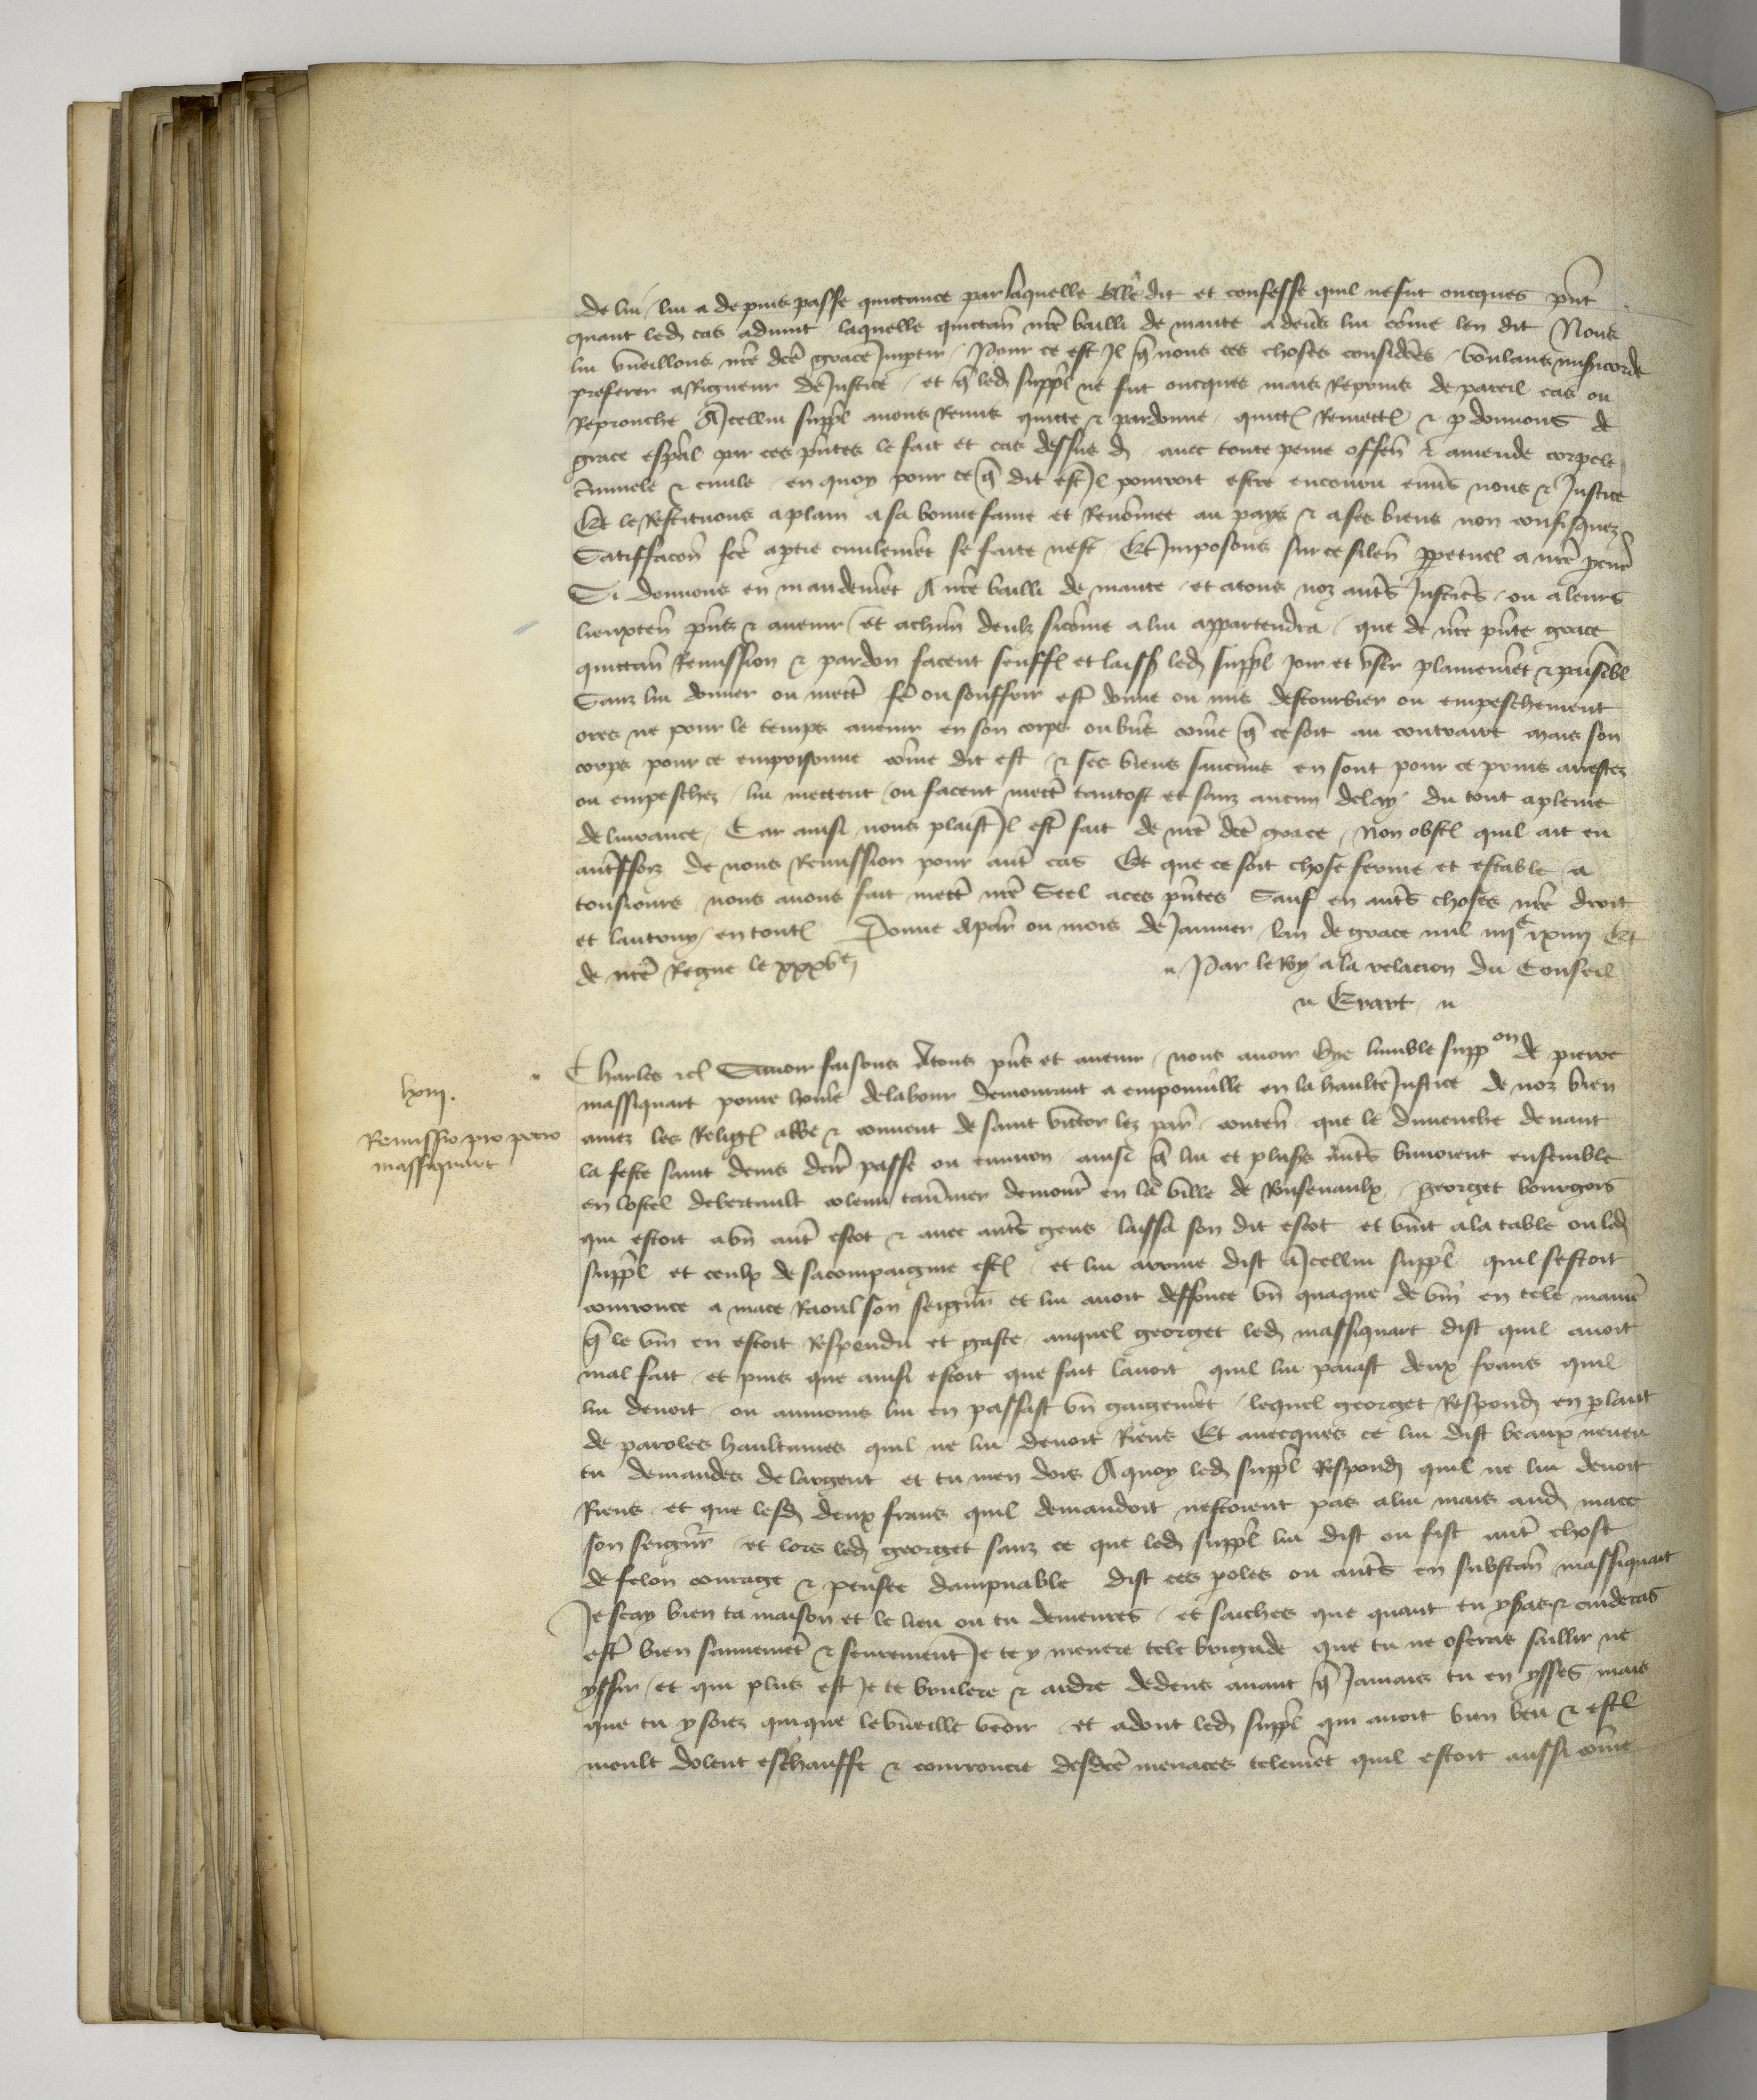 de lui lui a depuis passe quictance par laquelle elle dit et confesse quil ne fut oncques pñt
quant led cas advint laquelle quictan nr̃e bailli de mante a devs lui cõme len dit Nous
lui vueillons nr̃e dc̃e grace Impertir / Pour ce est Il q̃ nous ces choses considerées voulans misericorde
preferer a Rigueur de Justice / et q̃ led suppl ne fut oncques mais Reprins de pareil cas ou
Reprouche A Icellui suppl avons Remis quicte & pardonne quictõ Remettõ & pdonnons de
grace espal par ces pñtes le fait et cas dessus d avec toute peine offen & amende corpele
c̃iminele & civile en quoy pour ce q̃ dit est Il pourroit estre encouru envs nous & Justice
Et le Restituons a plain a sa bonne fame et Renõmee au pays & a ses biens non confisquez
Satisfacoñ fc̃e a ptie civilemẽt se faite nest Et Imposons sur ce silen ppetuel a nr̃e pcur̃
Si donnons en mandemẽt A nr̃e bailli de mante et a tous noz autẽs Justic̃s ou a leurs
lieuxten pñs & avenir et a chũn deulz sicõme a lui appartendra que de nr̃e pñte grace
quictan Remission & pardon facent seuff̃ et laiss̃ led suppl joir et user plainemẽt & paisibl̃
Sanz lui donner ou mett̃ s̃e ou souffrir est̃ donne ou mis destourbier ou empeschement
ores ne pour le temps avenir en son corps ou biẽs cõme q̃ ce soit au contraire mais son
corps pour ce emprisonne cõme dit est & ses biens saucuns en sont pour ce prins arrestez
ou empeschez lui mettent ou facent mett̃ tantost et sanz aucun delay du tout a pleine
delivrance Car ainsi nous plaist Il est̃ fait de nr̃e dc̃e grace Non obst̃ quil ait eu
autffoiz de nous Remission pour aut̃ cas Et que ce soit chose ferme et estable a
tousiours nous avons fait mett̃ nr̃e Seel a ces pñtes Sauf en autẽs choses nr̃e droit
et lautruy en toutõ Donne a paris ou mois de Janvier lan de grace mil iiijc xiiij Et
de nr̃e Regne le xxxve
Par le Roy a la relacion du Conseil
Erart
Charles &c Savoir faisons a tous pñs et avenir nous avoir oye lumble suppon de pierre
massiquart povre hõme de labour demourant a emponville en la haulte Justice de noz bien
amez les Religõ abbe & convent de saint victor lez par̃ conten que le dimenche devant
la feste saint denis derr̃ passe ou environ ainsi q̃ lui et plus̃s autẽs buvoient ensemble
en lostel de bertault colem tavernier demour̃ en la ville de Rusenaulx georget bourgois
qui estoit a uñ aut̃ escot & avec autẽs gens laissa son dit escot et vint a la table ou led
suppl et ceulx de sa compaignie estõ et lui arrive dist a Icellui suppl quil sestoit
courrouce a mace Raoul son seigñr et lui avoit deffonce uñ quaque de vin en tele manie
q̃ le vin en estoit Respendu et gaste auquel georget led massiquart dist quil avoit
mal fait et puis que ainsi estoit que fait lavoit quil lui paiast deux frans quil
lui devoit ou aumoins lui en passast uñ gaigemẽt lequel georget Respond en plant
de paroles haultaines quil ne lui devoit Riens Et avecques ce lui dist beaux neveu
tu demandes de largent et tu men dois A quoy led suppl Respond quil ne lui devoit
Riens et que lesd deux frans quil demandoit nestoient pas a lui mais aud mace
son seigñr et lors led georget sanz ce que led suppl lui dist ou fist aut̃ chose
de felon courage & pensee dampnable dist ces poles ou autẽs en substan massiquart
Je scay bien ta maison et le lieu ou tu demeures et saiches que quant tu y seras & cuideras
est̃ bien sainemẽt & seurement Je te y menere tele brigade que tu ne oseras saillir ne
yssir et qui plus est Je te brulere & ardre dedens avant q̃ Jamais tu en ysses mais
que tu y soiez quique le vueille veoir et adont led suppl qui avoit bien beu & estõ
moult dolent eschauffe & courroucie desdc̃es menaces telemẽt quil estoit aussi cõme
lxiij.
Remissio pro petro
massiquart